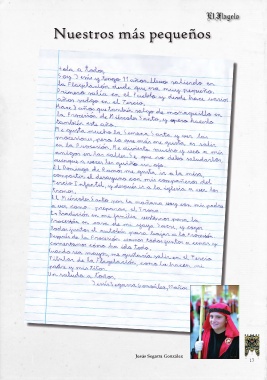 El Flagelo
Nuestros más pequeños
Hola a todos,
Soy Jesús y tengo 11 años. Llevo saliendo en
la Flagelación desde que era muy pequeño.
Primero salía en el Pueblo y desde hace varios
años salgo en el Tercio.
Hace 3 años que también salgo de monaguillo en
la Procesión de Miércoles Santo, y espero hacerlo
también este año.
Me gusta mucho la Semana Santa y ver las
procesiones, pero lo que más me gusta es salir
en la Procesión. Me divierte mucho y veo a mis
amigos en las sillas. Se que no debo saludarlos,
aunque a veces les guiño un ojo.
El Domingo de Ramos me gusta ir a la misa,
compartir el desayuno con mis compañeros del
Tercio Infantil, y después ir a la iglesia a ver los
tronos.
El Miércoles Santo por la mañana voy con mi padre
a ver como preparan el Trono.
Es tradición en mi familia vestirnos para la
Procesión en casa de mi
todos juntos el autobús para bajar a la Procesión.
Después de la Procesión vamos todos juntos a cenar y
comentamos como ha ido todo.
Cuando sea mayor, me gustaría salir en el Tercio
Titular de la Flagelación como lo hacen mi
padre y mis titos.
Un saludo a todos,
Jesús Segarra González, 11 años.
Jesús Segarra González
13